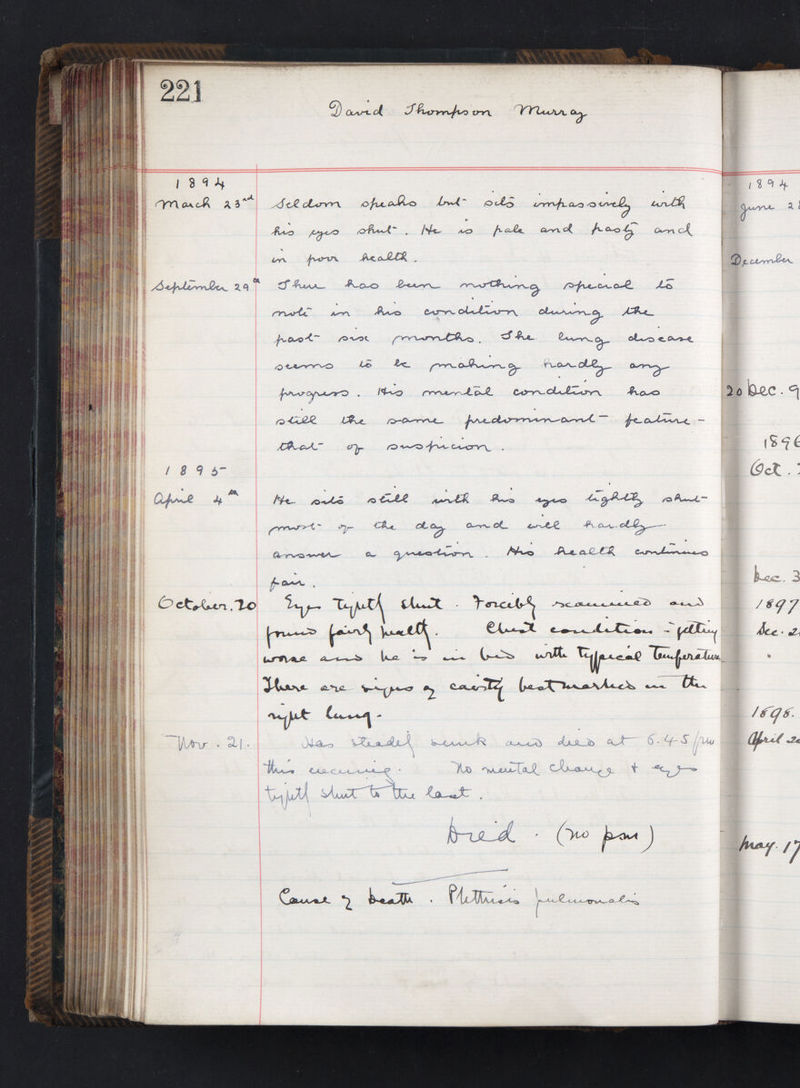 221
David Thompson Murray
1894
March 23rd Seldom speaks but sits impassively with
his eyes shut. He is pale and pasty and
in poor health.
September 29th There has been nothing special to
note in his condition during the
past six months. The lung disease
seems to be making hardly any
progress. His mental condition has
still the same predominant feature -
that of suspicion.
1895
April 4th He sits still with his eyes tightly shut
most of the day and will hardly
answer a question. His health continues
fair.
October. 20 Eyes tightly shut. Forcibly examined and
found fairly healthy. Chest condition is getting
worse and he is in bed with typical temperature
There are signs of cavity best marked in the
right lung.
Nov. 21. Has steadily sunk and died at 6.45 pm
this evening. No mental change & eyes
tightly shut to the last.
Died. (no pm)
Cause of Death. Phthisis pulmonalis
1894
June 2
December
20 Dec. 9
1896
Oct.
Dec. 3
1897
Dec. 2
1898.
April 2
May. 17